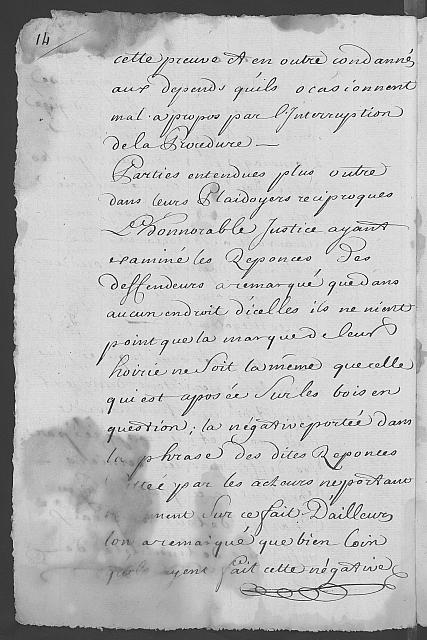 14
cette preuve et en outre condannés
aux depends quils ocasionnent
mal a propos par l'Interruption
de la Procedure —
Parties entendues plus outre
dans leurs Plaidoyers reciproques
L'honnorable Justice ayant
examiné les Reponces des
deffendeurs a remarqué que dans
aucun endroit dicelles ils ne nient
point que la marque de leur
hoirie ne soit la même que celle
qui est aposée sur les bois en
question; la négative portée dans
la phrase des dites Reponces
par les acteurs ne portant
sur ce fait D'ailleurs
lon a remarqué que bien Loin
ayent fait cette négative